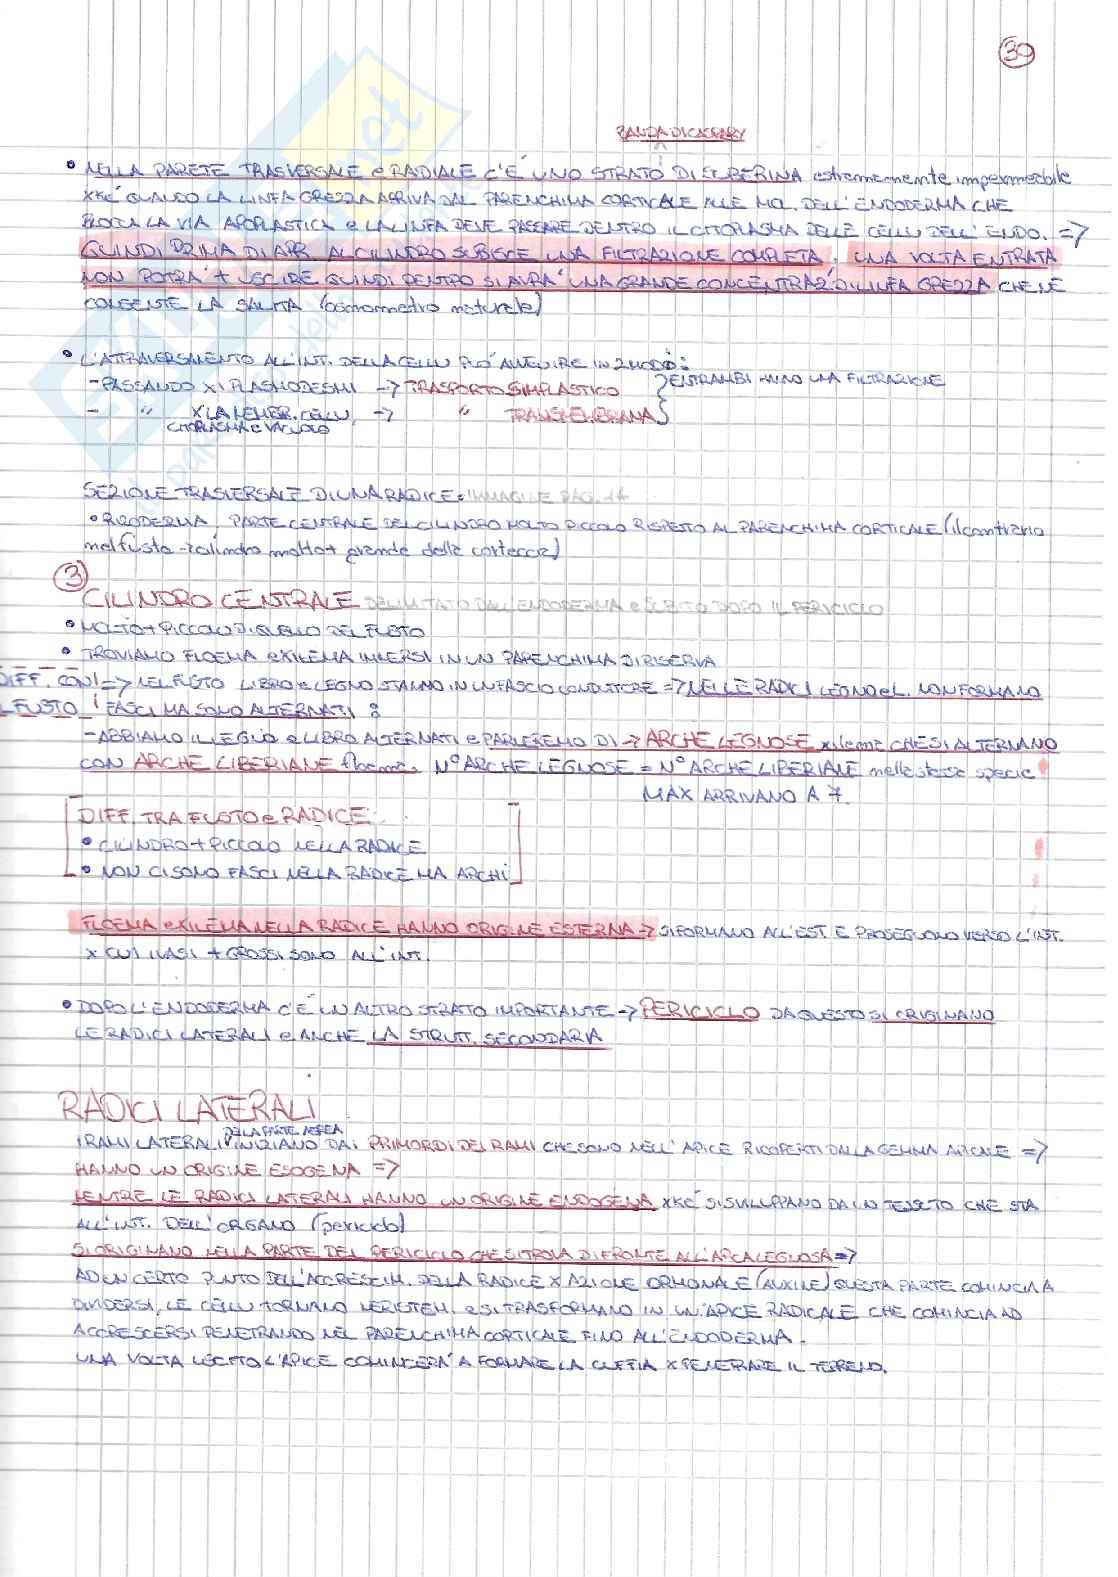 39
BANDA DI CASPARY
• NELLA PARETE TRASVERSALE e RADIALE C'È UNO STRATO DI SUBERINA estremamente impermeabile
XKÉ QUANDO LA LINFA GREZZA ARRIVA DAL PARENCHIMA CORTICALE ALLE MOL. DELL'ENDODERMA CHE
BLOCCA LA VIA APOPLASTICA e LA LINFA DEVE PASSARE DENTRO IL CITOPLASMA DELLE CELLU DELL'ENDO. =>
QUINDI PRIMA DI ARR. AL CILINDRO SUBISCE UNA FILTRAZIONE COMPLETA. UNA VOLTA ENTRATA
NON POTRA' + USCIRE QUINDI DENTRO SI AVRA' UNA GRANDE CONCENTRAZ. DI LINFA GREZZA CHE NE
CONSENTE LA SALITA (osmometro naturale)
• L'ATTRAVERSAMENTO ALL'INT. DELLA CELLU PUÓ AVVENIRE IN 2 MODI:
- PASSANDO X I PLASMODESMI -> TRASPORTO SIMPLASTICO } ENTRAMBI HANNO UNA FILTRAZIONE
- " X LA MEMBR. CELLU, -> " TRANSMEMBRANA }
CITOPLASMA e VACUOLO
SEZIONE TRASVERSALE DI UNA RADICE: IMMAGINE PAG. 17
• RIZODERMA, PARTE CENTRALE DEL CILINDRO MOLTO PICCOLO RISPETTO AL PARENCHIMA CORTICALE (il contrario
nel fusto -> cilindro molto + grande della corteccia)
3
CILINDRO CENTRALE DELIMITATO DALL'ENDODERMA e SUBITO DOPO IL PERICICLO
• MOLTO + PICCOLO DI QUELLO DEL FUSTO
• TROVIAMO FLOEMA e XILEMA IMMERSI IN UN PARENCHIMA DI RISERVA
DIFF. CON => NEL FUSTO LIBRO e LEGNO STANNO IN UN FASCIO CONDUTTORE => NELLE RADICI LEGNO e L. NON FORMANO
IL FUSTO FASCI MA SONO ALTERNATI:
- ABBIAMO IL LEGNO e LIBRO ALTERNATI e PARLEREMO DI -> ARCHE LEGNOSE xilema CHE SI ALTERNANO
CON ARCHE LIBERIANE floema. N° ARCHE LEGNOSE = N° ARCHE LIBERIANE nella stessa specie
MAX ARRIVANO A 7.
DIFF. TRA FUSTO e RADICE:
• CILINDRO + PICCOLO NELLA RADICE
• NON CI SONO FASCI NELLA RADICE MA ARCHI
FLOEMA e XILEMA NELLA RADICE HANNO ORIGINE ESTERNA -> SI FORMANO ALL'EST. E PROSEGUONO VERSO L'INT.
X CUI I VASI + GROSSI SONO ALL'INT.
• DOPO L'ENDODERMA C'É UN ALTRO STRATO IMPORTANTE -> PERICICLO DA QUESTO SI ORIGINANO
LE RADICI LATERALI e ANCHE LA STRUTT. SECONDARIA
RADICI LATERALI
DELLA PARTE AEREA
I RAMI LATERALI INIZIANO DAI PRIMORDI DEI RAMI CHE SONO NELL'APICE RICOPERTI DALLA GEMMA APICALE =>
HANNO UN ORIGINE ESOGENA =>
MENTRE LE RADICI LATERALI HANNO UN ORIGINE ENDOGENA XKÉ SI SVILUPPANO DA UN TESSUTO CHE STA
ALL'INT. DELL'ORGANO (periciclo)
SI ORIGINANO NELLA PARTE DEL PERICICLO CHE SI TROVA DI FRONTE ALL'ARCA LEGNOSA =>
AD UN CERTO PUNTO DELL'ACCRESCIM. DELLA RADICE X AZIONE ORMONALE (AUXINE) QUESTA PARTE COMINCIA A
DIVIDERSI, LE CELLU TORNANO MERISTEM. e SI TRASFORMANO IN UN'APICE RADICALE CHE COMINCIA AD
ACCRESCERSI PENETRANDO NEL PARENCHIMA CORTICALE FINO ALL'ENDODERMA.
UNA VOLTA USCITO L'APICE COMINCERA' A FORMARE LA CUFFIA X PENETRARE IL TERRENO.